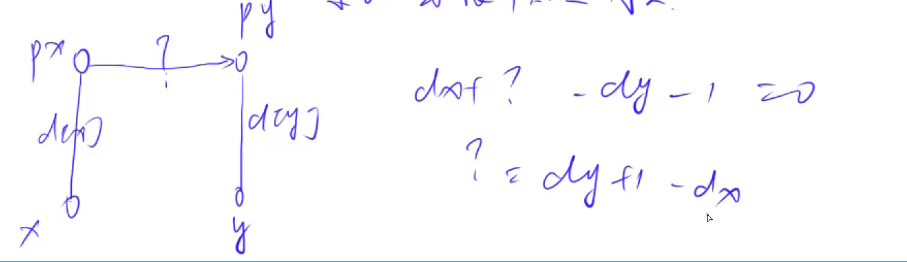 py
px ?
d[x] d[y]
dx+ ? - dy - 1 = 0
? = dy+1 - dx
x y